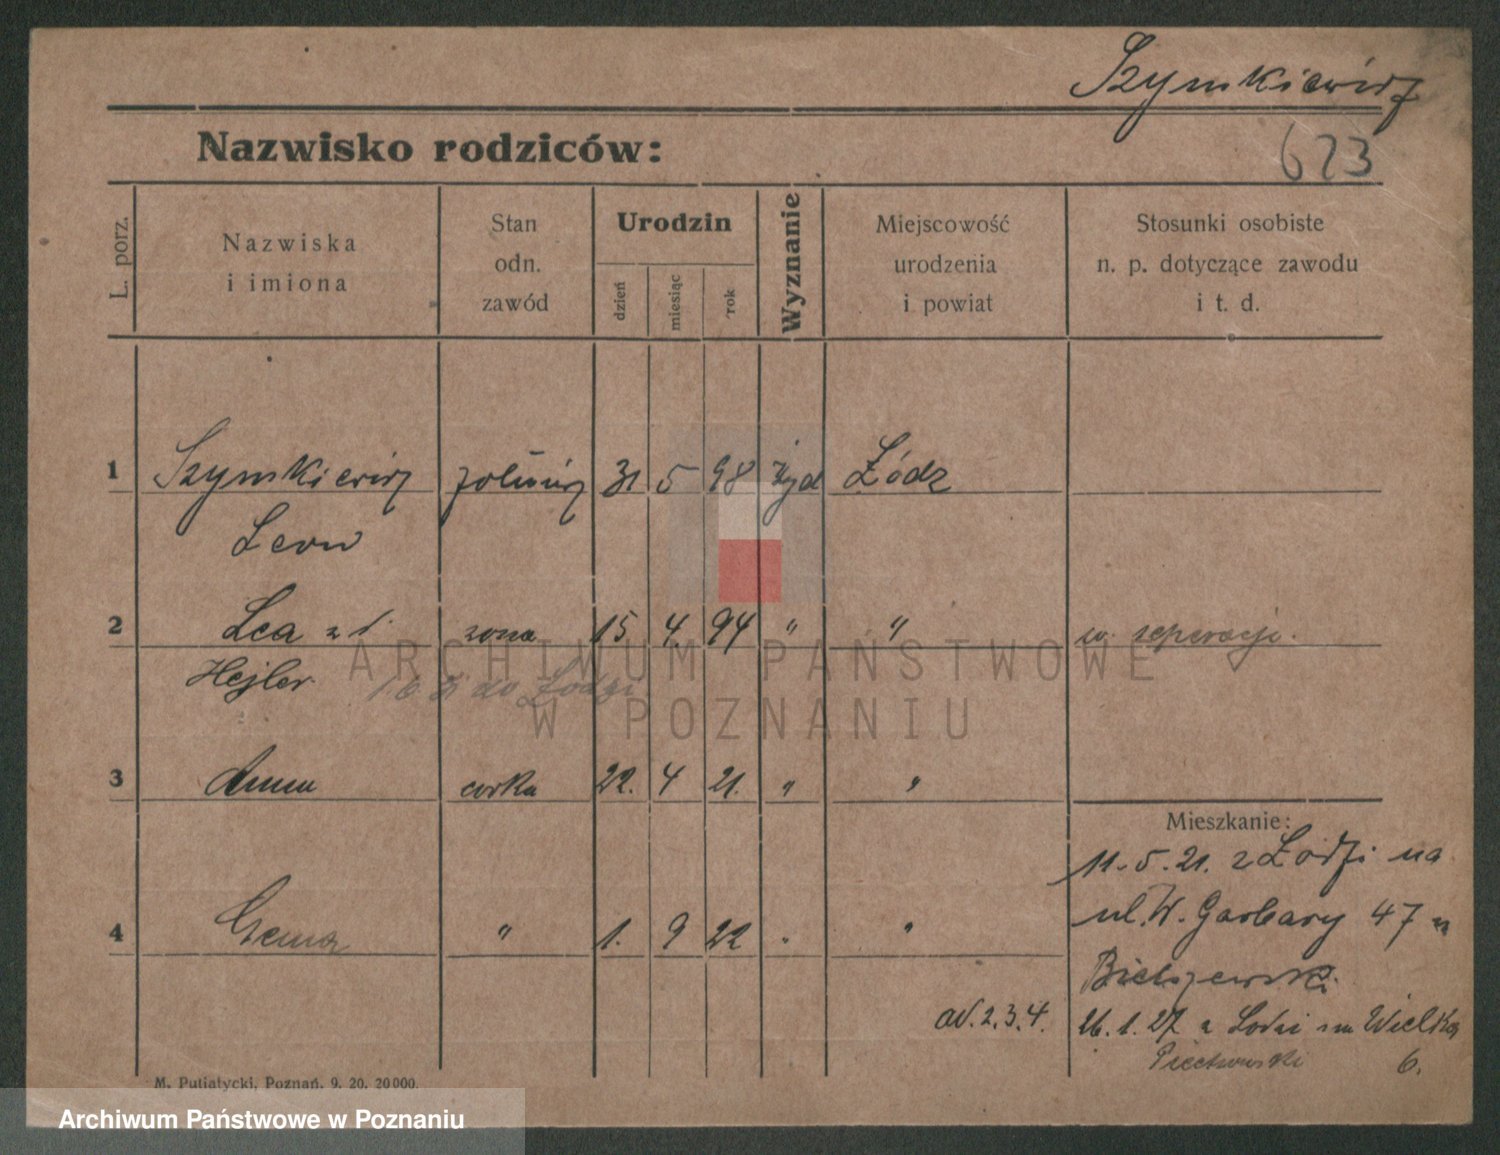 Szymkiewicz
623
Nazwisko rodziców:
L. porz.
Nazwiska
i imiona
Stan
odn.
zawód
Urodzin
dzień
miesiąc
rok
Wyznanie
Miejscowość
urodzenia
i powiat
Stosunki osobiste
n. p. dotyczące zawodu
i t. d.
1 Szymkiewicz żołnierz 31 5 98 żyd Łódz
Leon
2 Lea z d. zona 15 4. 94 " " w. seperacji.
Hejler. do Łodzi.
3 Anna corka 22. 4 21. " "
Mieszkanie:
11.5.21. z Łodzi na
ul. W. Garbary 47 u
4 Gema " 1. 9 22 " "
Bielszewski.
ad. 2.3.4. 26.1.27 z Łodzi na Wielka
6.
M. Putiatycki, Poznań. 9. 20. 20000.
ARCHIWUM PAŃSTWOWE
W POZNANIU
Archiwum Państwowe w Poznaniu